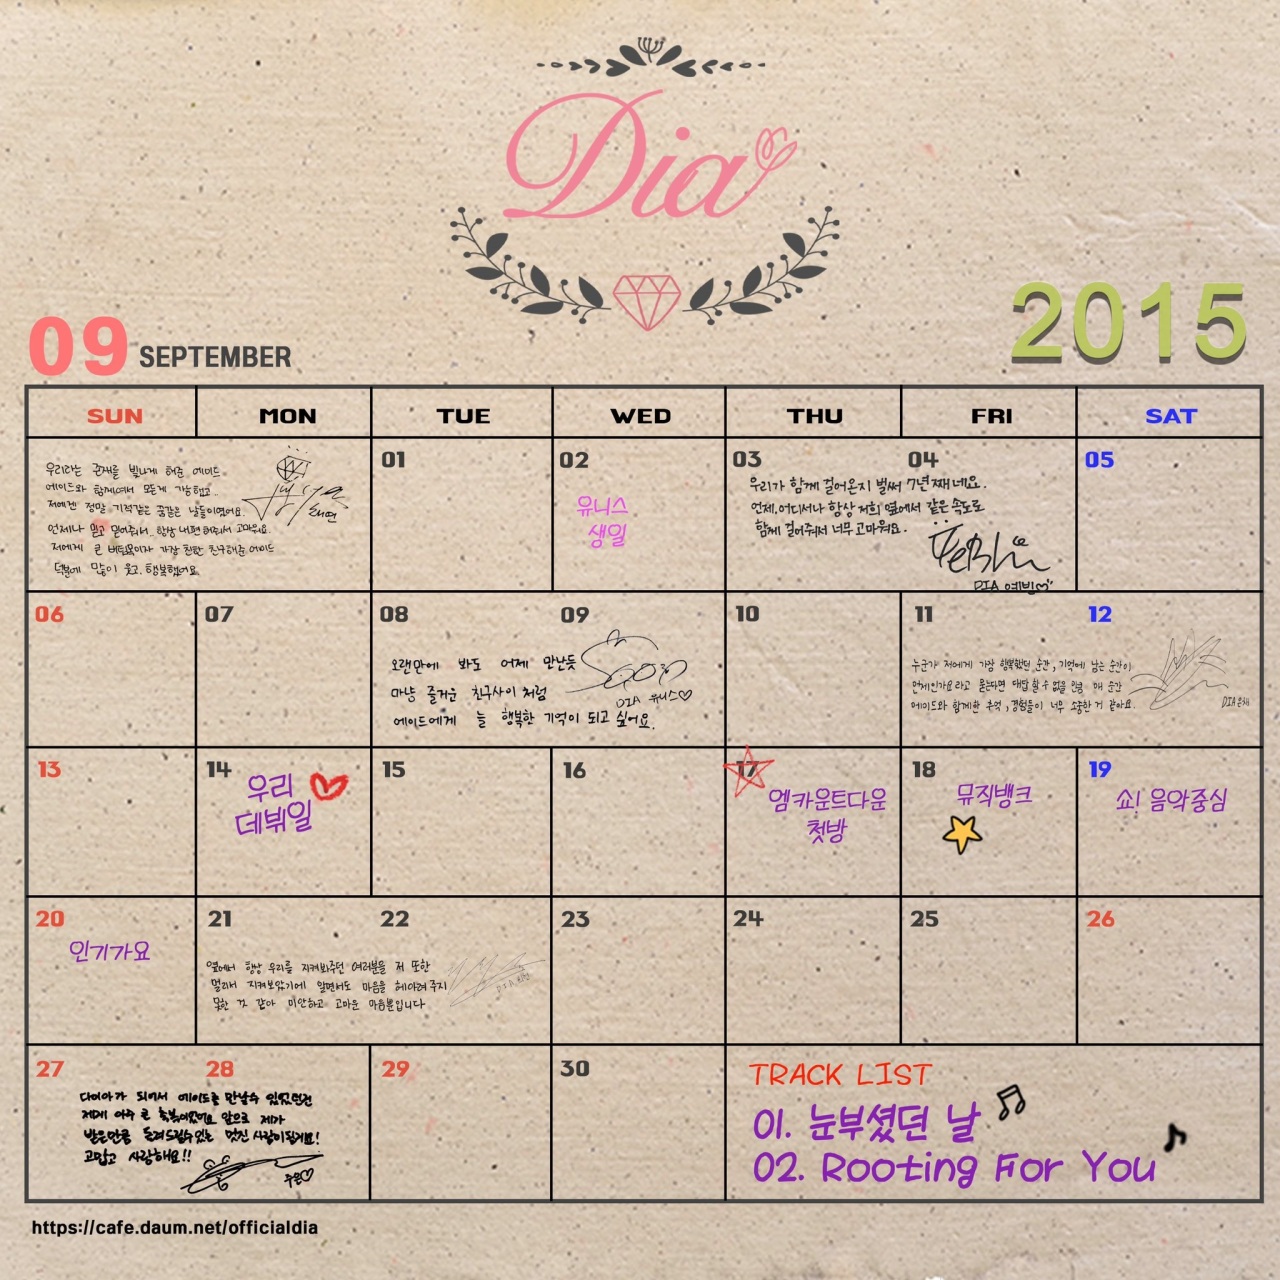 Dia
2015
09 SEPTEMBER
SUN MON TUE WED THU FRI SAT
우리라는 존재를 빛나게 해준 에이드
에이드와 함께여서 모든게 가능했고..
저에겐 정말 기적같은 꿈같은 날들이였어요.
언제나 믿고 믿어주서.. 항상 내편 해줘서 고마워요.
저에게 큰 버팀목이자 가장 친한 친구해준 에이드
덕분에 많이 웃고, 행복했어요
01
02
유니스
생일
03 04
우리가 함께 걸어온지 벌써 7년째네요.
언제, 어디서나 항상 저희 옆에서 같은 속도로
함께 걸어줘서 너무 고마워요.
DIA 예빈
05
06
07
08 09
오랜만에 봐도 어제 만난듯
마냥 즐거운 친구사이 처럼
에이드에게 늘 행복한 기억이 되고 싶어요.
DIA 유니스♡
10
11 12
누군가 저에게 가장 행복했던 순간, 기억에 남는 순간이
언제인가요라고 묻는다면 대답할 수 없을 만큼 매 순간
에이드와 함께한 추억, 경험들이 너무 소중한 거 같아요.
DIA 은채
13
14
우리
데뷔일
15
16
17
엠카운트다운
첫방
18
뮤직뱅크
19
쇼! 음악중심
20
인기가요
21 22
옆에서 항상 우리를 지켜봐주던 여러분을 저 또한
멀리서 지켜보았기에 알면서도 마음을 헤아려 주지
못한 것 같아 미안하고 고마운 마음뿐입니다
23
24
25
26
27 28
다이아가 되어서 에이드를 만날수 있었던건
제게 아주 큰 축복이었어요 앞으로 제가
받은만큼 돌려드릴수있는 멋진 사람이될게요!
고맙고 사랑해요!!
주은♡
29
30
TRACK LIST
01. 눈부셨던 날
02. Rooting For You
https://cafe.daum.net/officialdia